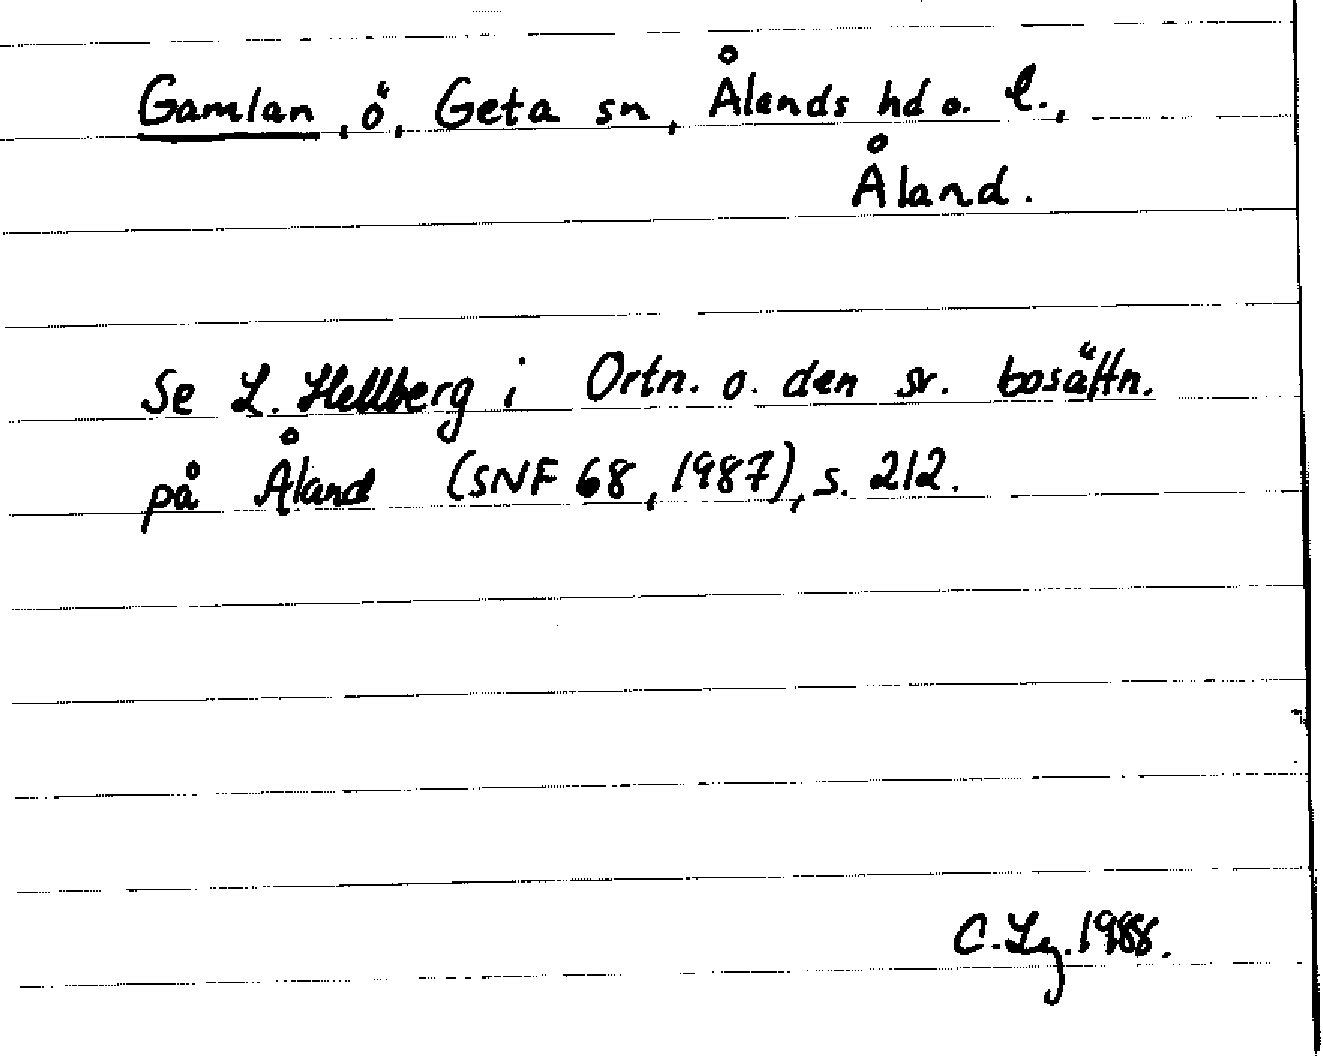 Gamlan, ö, Geta sn, Ålands hd o. l.,
Åland.
Se L. Hellberg i Ortn. o. den sv. bosättn.
på Åland (SNF 68, 1987), s. 212.
C. Lg. 1988.